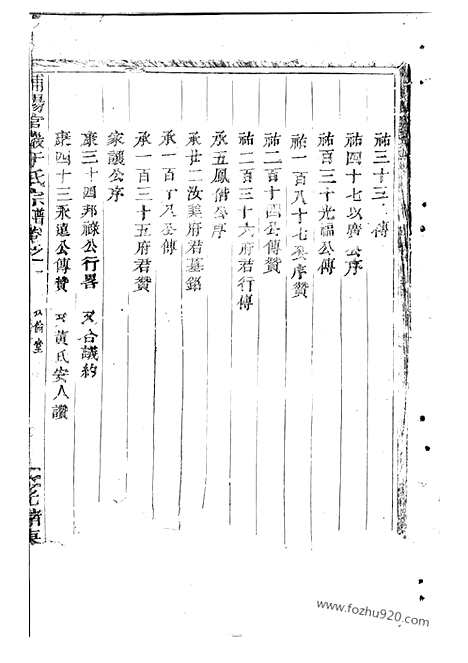 祐三十三傳
祐四十七以廣公序
祐百三十光福公傳
祐一百八十七公序贊
祐二百十四公傳贊
祐二百三十六府君行傳
承五鳳偕公序
承廿二汝美府君墓銘
承一百十公傳
承一百三十五府君贊
家讓公序
康三十四邦祿公行畧 又合議約
康四十三永遠公傳贊 又黃氏安人讚
浦陽官巖于氏宗譜卷之一
倫堂
光緒
www.fozhu920.com